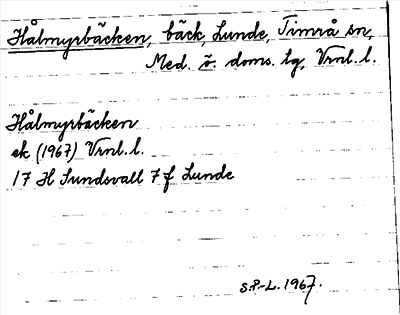 Hålmyrbäcken, bäck, Lunde, Timrå sn,
Med. ö. doms. lg, Vrnl. l.
Hålmyrbäcken
ek (1967) Vrnl. l.
17 H Sundsvall 7 f Lunde
S.P-L. 1967.